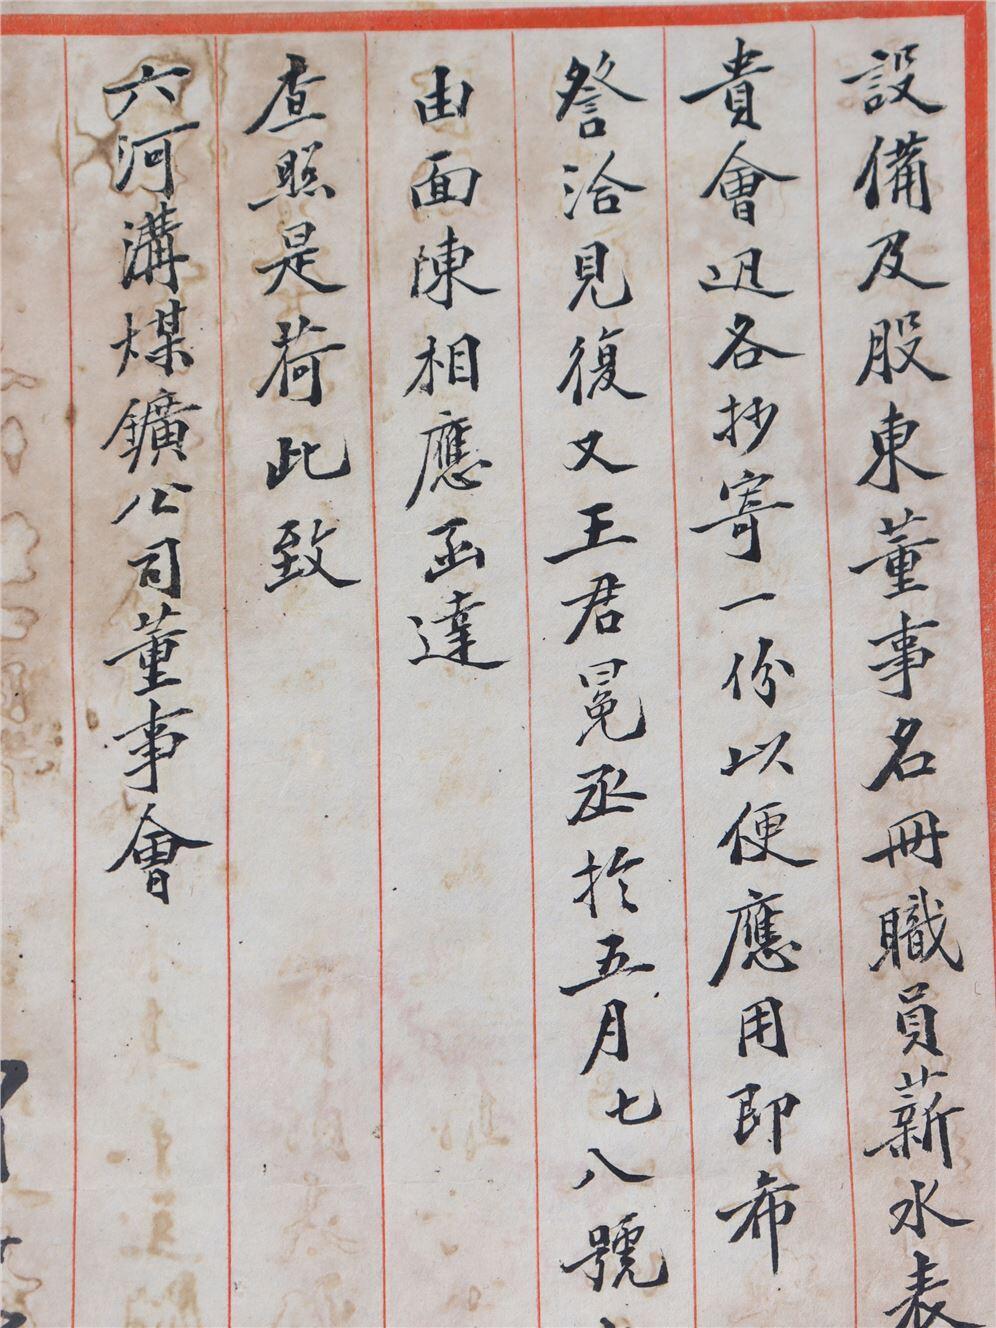 設備及股東董事名冊職員薪水表
貴會迅各抄寄一份以便應用即希
詧洽見復又王君冕丞於五月七八號
由面陳相應函達
查照是荷此致
六河溝煤鑛公司董事會